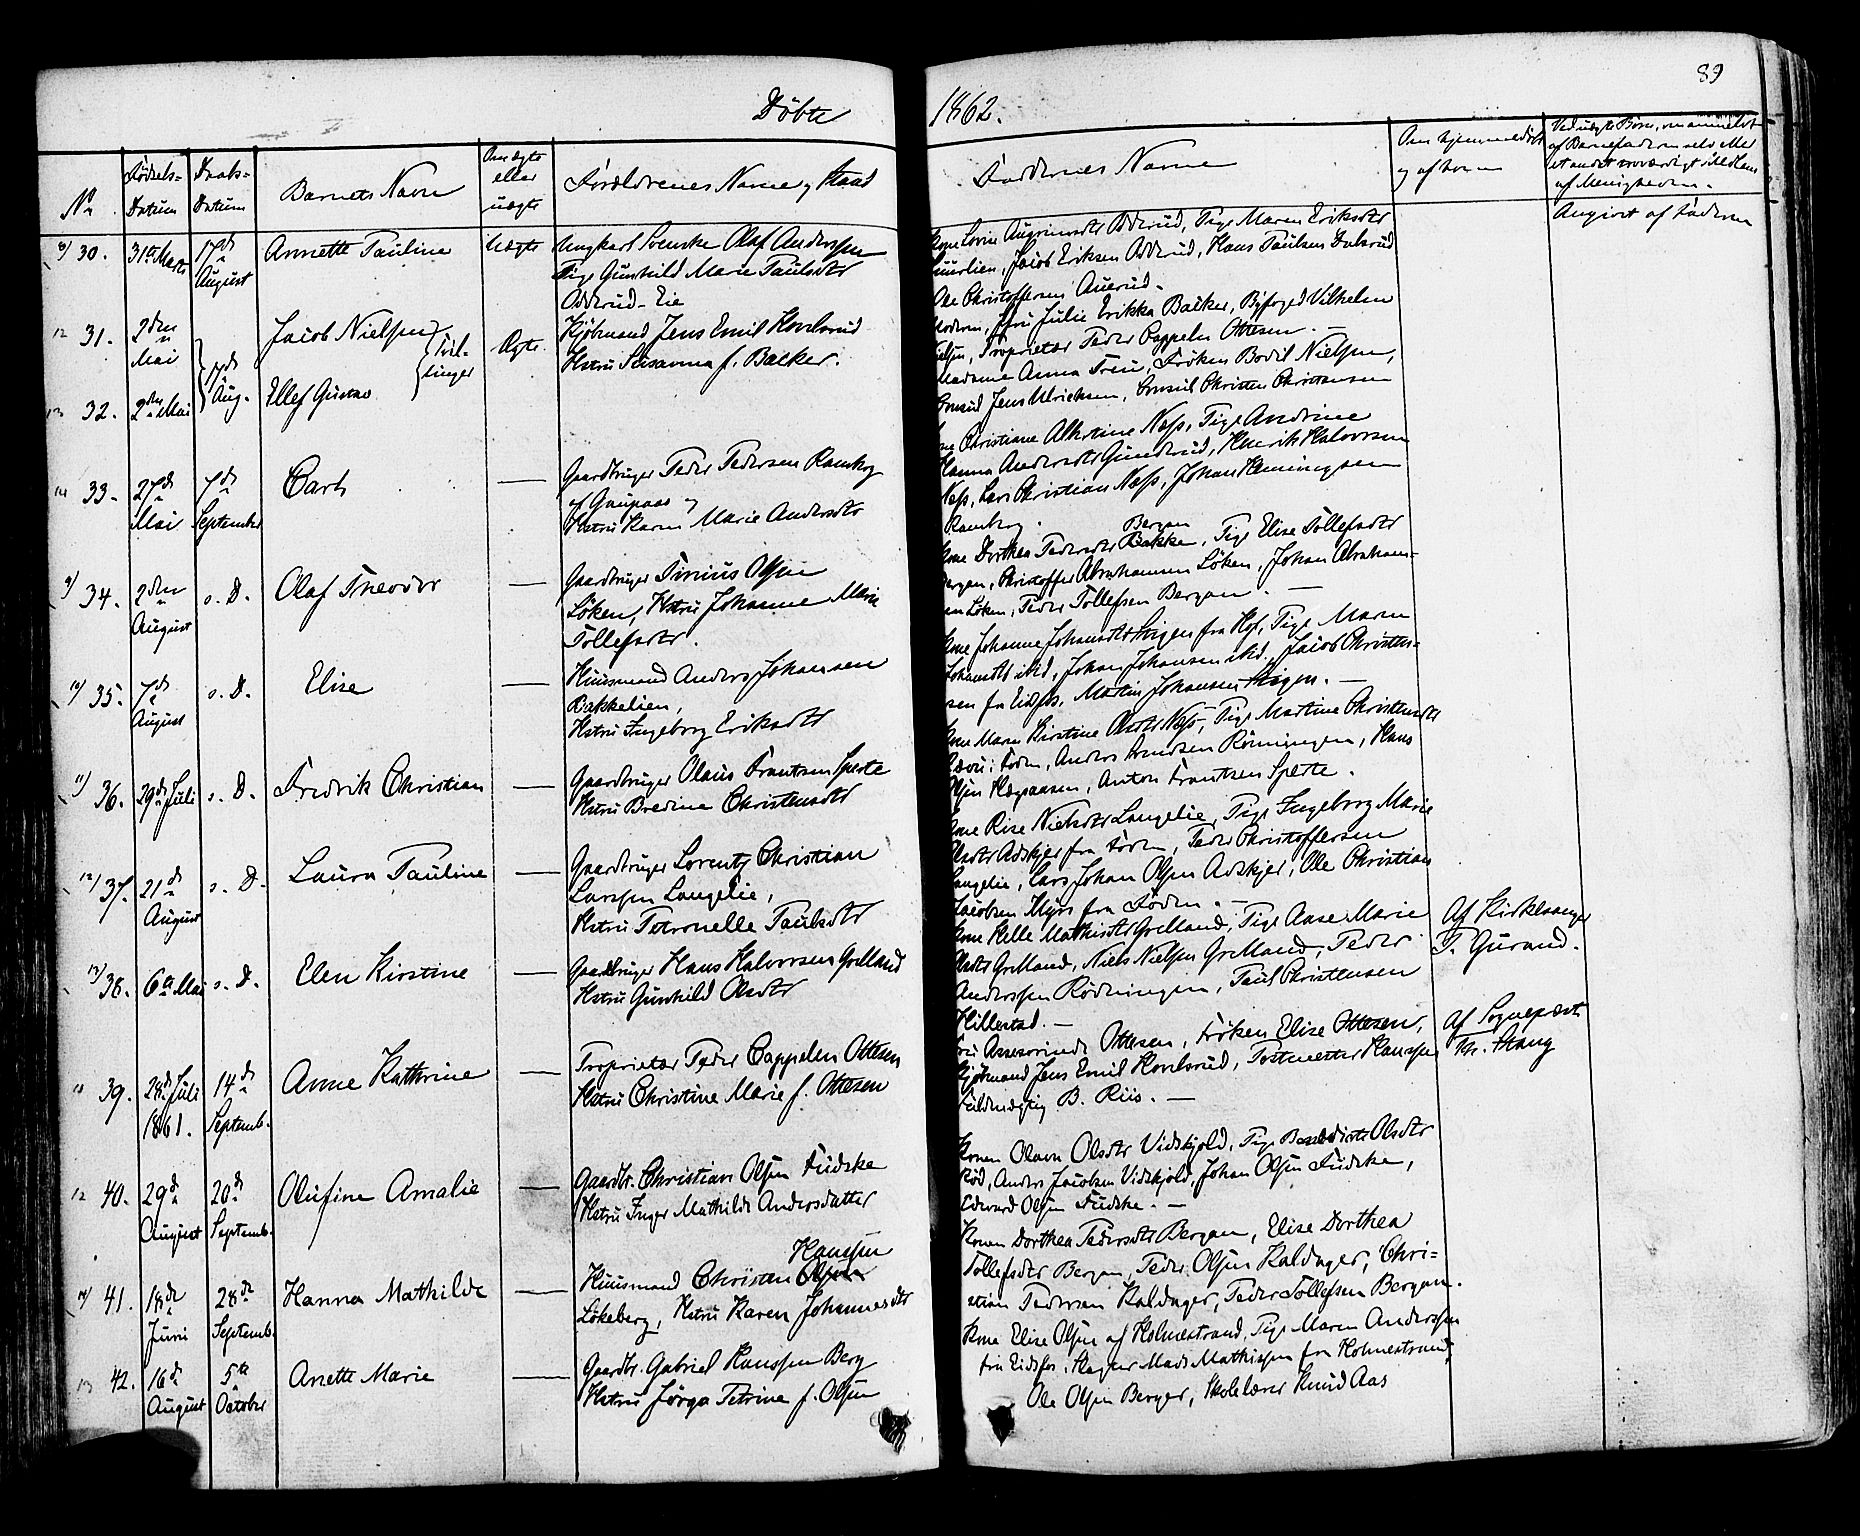 Døbte
1862.
89
No
Fødsels-
Datum
Daabs-
Datum
Barnets Navn
Om ægte
eller
uægte
Forældrenes Navne og Stand
Faddernes Navne
Om hjemmedøbt
og af hvem
Angivet af Faderen
30.
31te Marts
17de
August
Annette Pauline
Uægte
Ungkarl Svenske Olaf Anderssen
Pige Gunhild Marie Paulsdtr
Odderud-Eie
Kone Lovise Odderud, Pige Maren Eriksdtr
Jacob Eriksen Odderud, Hans Paulsen
Ole Christoffersen Auerud.
31.
2den
Mai
17de
Aug.
Jacob Nielsen
Tvil-
linger
Ægte
Kjøbmand Jens Emil Hovlsrud
Hstru Susanna f. Backer.
32.
2den Mai
Ellef Gustav
Moderen, Fru Julie Erikka Backer, Byfoged Vilhelm
Nielsen, Proprietær Peder Cappelen Ottesen.
Madame Anna Freu, Frøken Bodil Nielsen,
Consul Jens Ulrichsen, Consul Christen Christensen
33.
27de
Mai
7de
September
Carl
Gaardbruger Peder Pedersen Ramberg
af Gaupaas og
Hstru Karen Marie Andersdtr
Kone Christiane Albertine Næss, Pige Andrine
Hanna Andersdtr Gunderud, Henrik Halvorsen
Næss, Lars Christian Næss, Johan Hemingsen
Ramberg.
34.
2den
August
s. D.
Olaf Theodor
Gaardbruger Tinius Olsen
Løken, Hstru Johanne Marie
Tollefsdtr.
Bergan
Kone Dorthea Pedersdtr Bakken, Pige Elise Tollefsdtr
Bergan, Christoffer Abrahamsen Løken, Johan Abraham-
sen Løken, Peder Tollefsen Bergan.
35.
7de
August
s. D.
Elise
Huusmand Anders Johansen
Bakkelien,
Hstru Ingeborg Eriksdtr
Kone Johanne Johansdtr Stigen fra Hof, Pige Maren
Johansdtr ibid, Johan Johansen ibid, Jacob Christen-
sen fra Eidsfos, Martin Johansen Stigen.
36.
29de Juli
s. D.
Fredrik Christian
Gaardbruger Olaus Frantsen Sperte
Hstru Bredine Christensdtr
Kone Maren Kirstine Olsdtr Næss, Pige Martine Christensdtr
Anders Arndsen Rønningen, Hans
Olsen Haugaasen, Anton Frantsen Sperte.
37.
21de
August
s. D.
Laura Pauline
Gaardbruger Lorentz Christian
Larssen Langelie,
Hstru Petronelle Paulsdtr
Kone Rise Nielsdtr Langelie, Pige Ingeborg Marie
Olsdtr Adskjer fra Foden, Peder Christoffersen
Langelie, Lars Johan Olsen Adskjer, Ole Christian
Jacobsen Myrs fra Foden.
38.
6te Mai
s. D.
Elen Kirstine
Gaardbruger Hans Halvorsen Grelland
Hstru Gunhild Olsdtr
Kone Helle Mathisdtr Grelland, Pige Aase Marie
Olsdtr Grelland, Niels Nielsen Grelland, Peder
Anderssen Rødningen, Paul Christensen
Hillestad.
Af Kirkesanger
T. Gurand.
39.
28de Juli
1861.
14de
Septemb.
Anne Kathrine
Proprietær Peder Cappelen Ottesen
Hstru Christine Marie f. Ottesen
Fru Assessorinde Ottesen, Frøken Elise Ottesen,
Kjøbmand Jens Emil Hovlsrud, Postmester Hanssen
Fuldmægtig B. Riis.
Af Sognepræst
Th. Stang
40.
29de
August
20de
Septemb.
Olufine Amalie
Gaardbr. Christian Olsen Fudske
Hstru Inger Mathilde Andersdatter
Konen Olava Olsdtr Vidskjold, Pige Benedicte Olsdtr
Rød, Anders Jacobsen Vidskjold, Johan Olsen Fudske,
Edvard Olsen Fudske.
41.
18de
Juni
28de
Septemb.
Hanna Mathilde
Hanssen
Huusmand Christian Olsen
Løkeberg, Hstru Karen Johannesdtr
Konen Dorthea Pedersdtr Bergan, Elise Dorthea
Tollefsdtr Bergan, Peder Olsen Kaldager, Chri-
stian Pedersen Kaldager, Peder Tollefsen Bergan.
42.
16de
August
5te
October
Anette Marie
Gaardbr. Gabriel Hanssen Berg
Hstru Jørga Petrine f. Olsen
Kone Elise Olsen af Holmestrand, Pige Maren Anderssen
fra Eidsfos, Mads Mathissen fra Holmestrand,
Ole Olsen Berger, Skolelærer Knud Aas